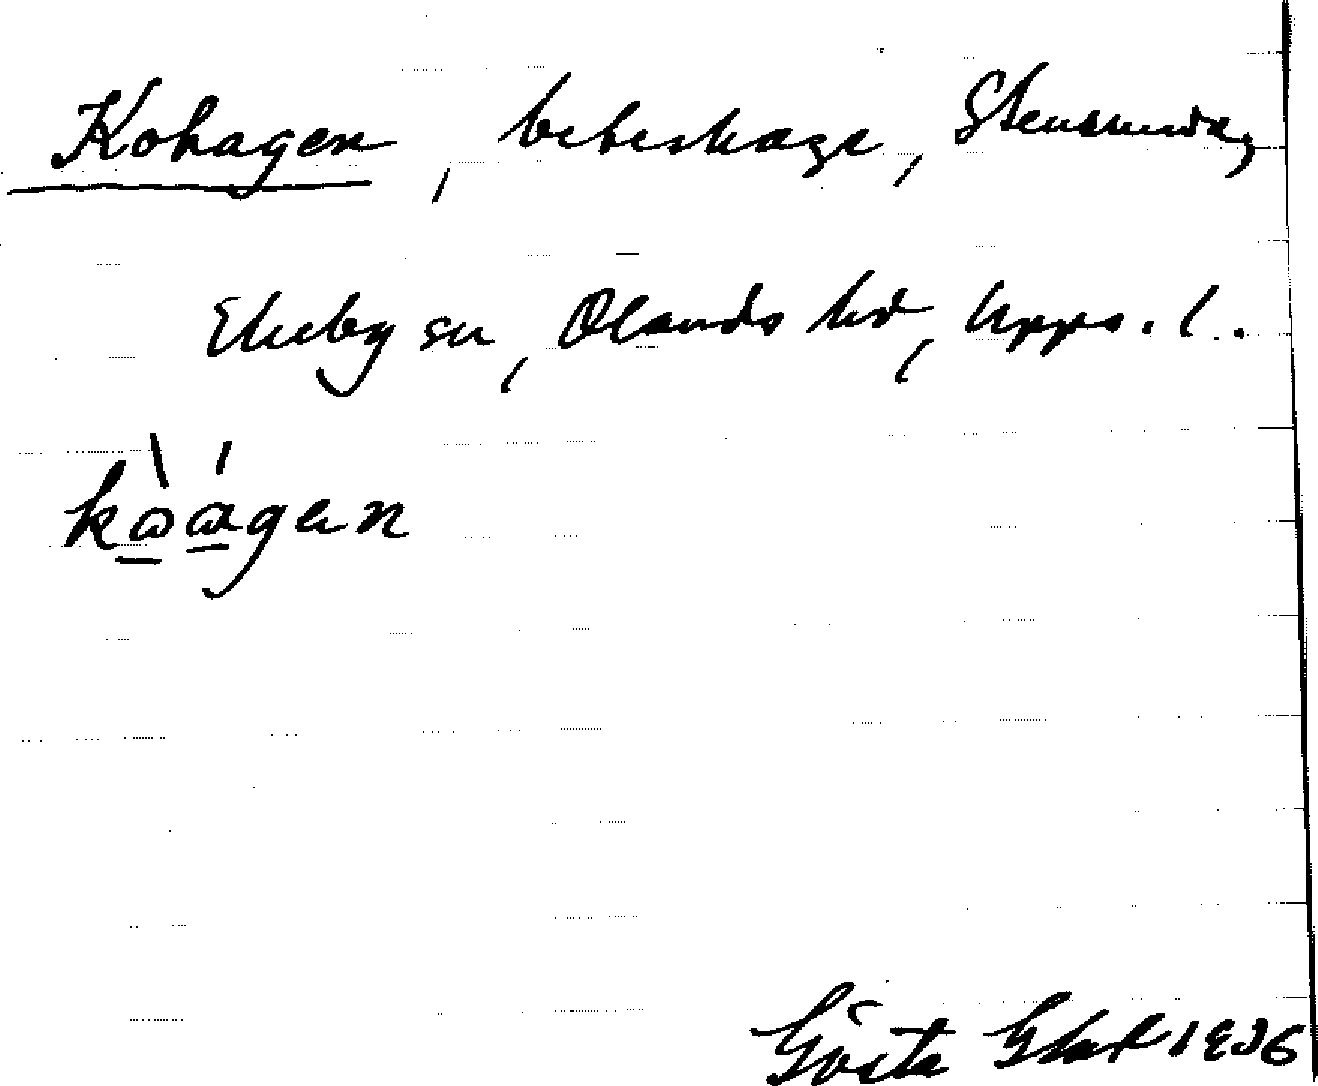 Kohagen, beteshage, Stensunda,
Ekeby sn, Olands hd, Upps. l.
kòágen
Gösta 1936